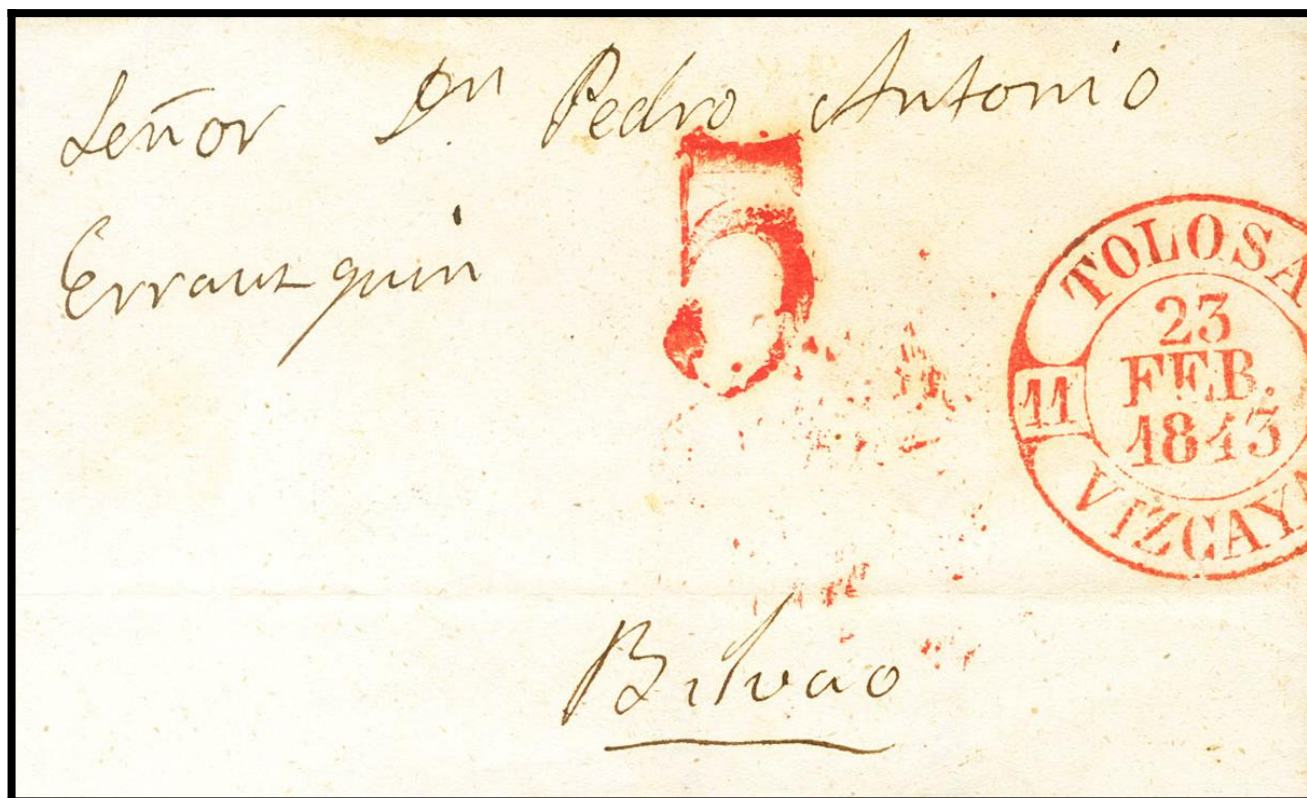 Señor Dn Pedro Antonio
Errauzquin
5
TOLOSA
23
FEB.
1843
11
VIZCAYA
Bilvao